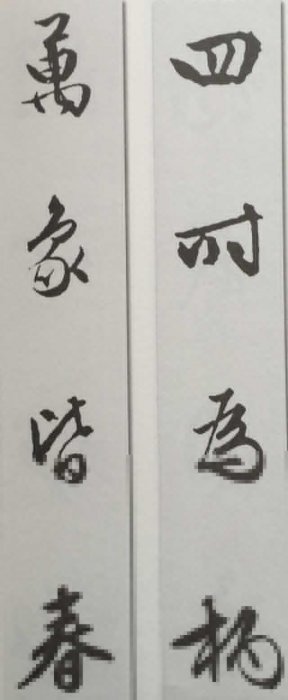 四时为柄
萬象皆春